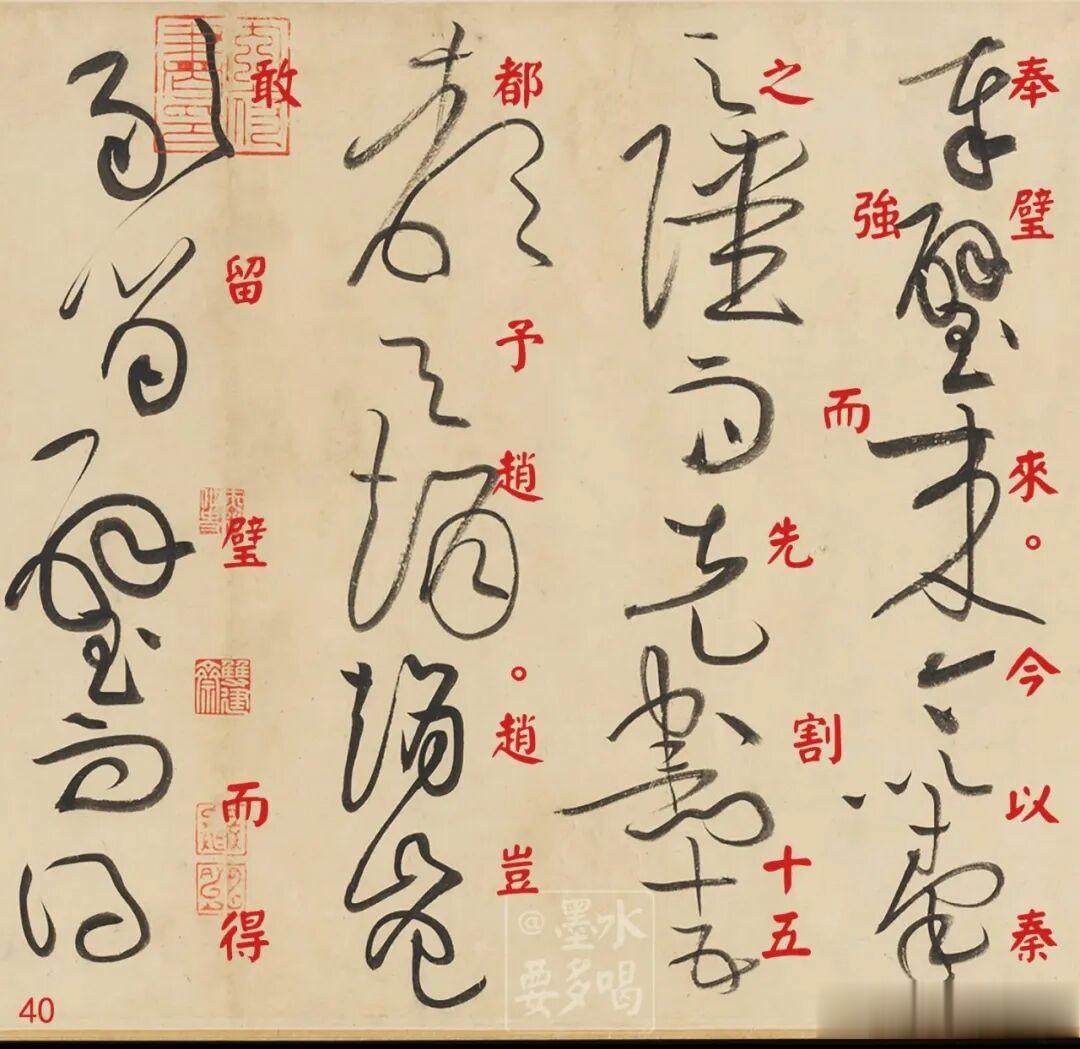 奉璧來。今以秦
之強而先割十五
都予趙。趙豈
敢留璧而得
40
@墨水
要多喝